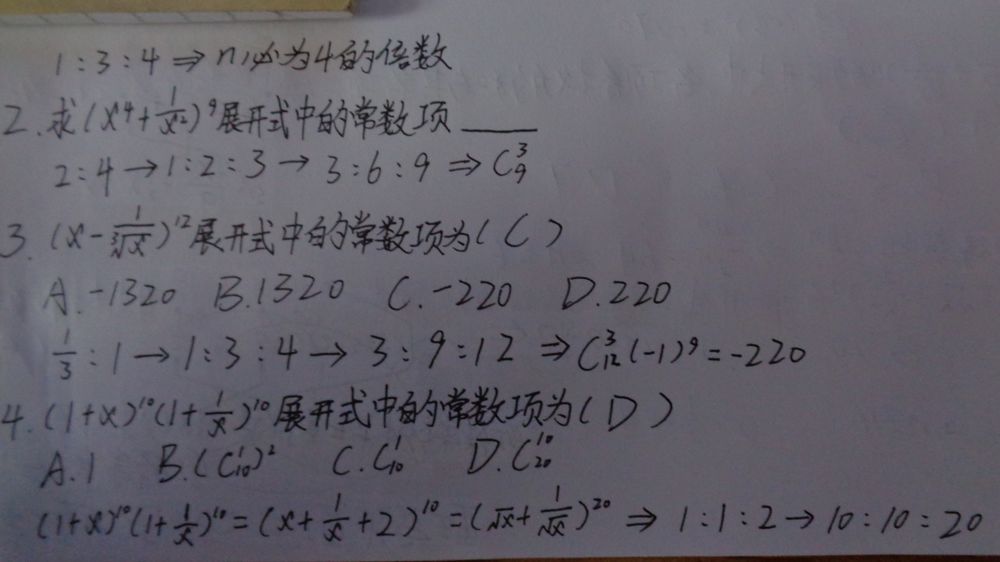 1:3:4⇒n必为4的倍数
2.求(x⁴+1/x²)⁹展开式中的常数项____
2:4→1:2:3→3:6:9⇒C₉³
3.(x-1/∛x)¹²展开式中的常数项为(C)
A.-1320 B.1320 C.-220 D.220
1/3:1→1:3:4→3:9:12⇒C₁₂³(-1)⁹=-220
4.(1+x)¹⁰(1+1/x)¹⁰展开式中的常数项为(D)
A.1 B.(C₁₀¹)² C.C₁₀¹ D.C₂₀¹⁰
(1+x)¹⁰(1+1/x)¹⁰=(x+1/x+2)¹⁰=(√x+1/√x)²⁰⇒1:1:2→10:10:20